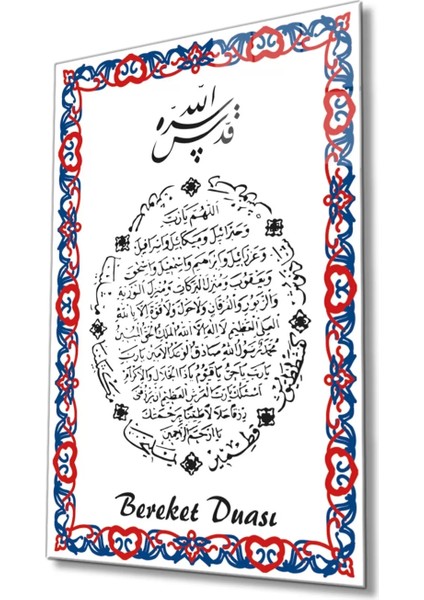 قدّس الله سرّه
اللهم يارب
وجبرائيل وميكائيل واسرافيل
وعزرائيل وابراهيم واسمعيل واسحق
ويعقوب ومنزل البركات ومنزل التورية
والزبور والفرقان ولاحول ولاقوة الا بالله
العلي العظيم لااله الا الله الملك الحق المبين
محمد رسول الله صادق الوعد الامين يارب
يارب ياحي ياقيوم ياذا الجلال والاكرام
اسئلك يارب العرش العظيم ان ترزقني
رزقا حلالا طيبا برحمتك
يا ارحم الراحمين
Bereket Duası